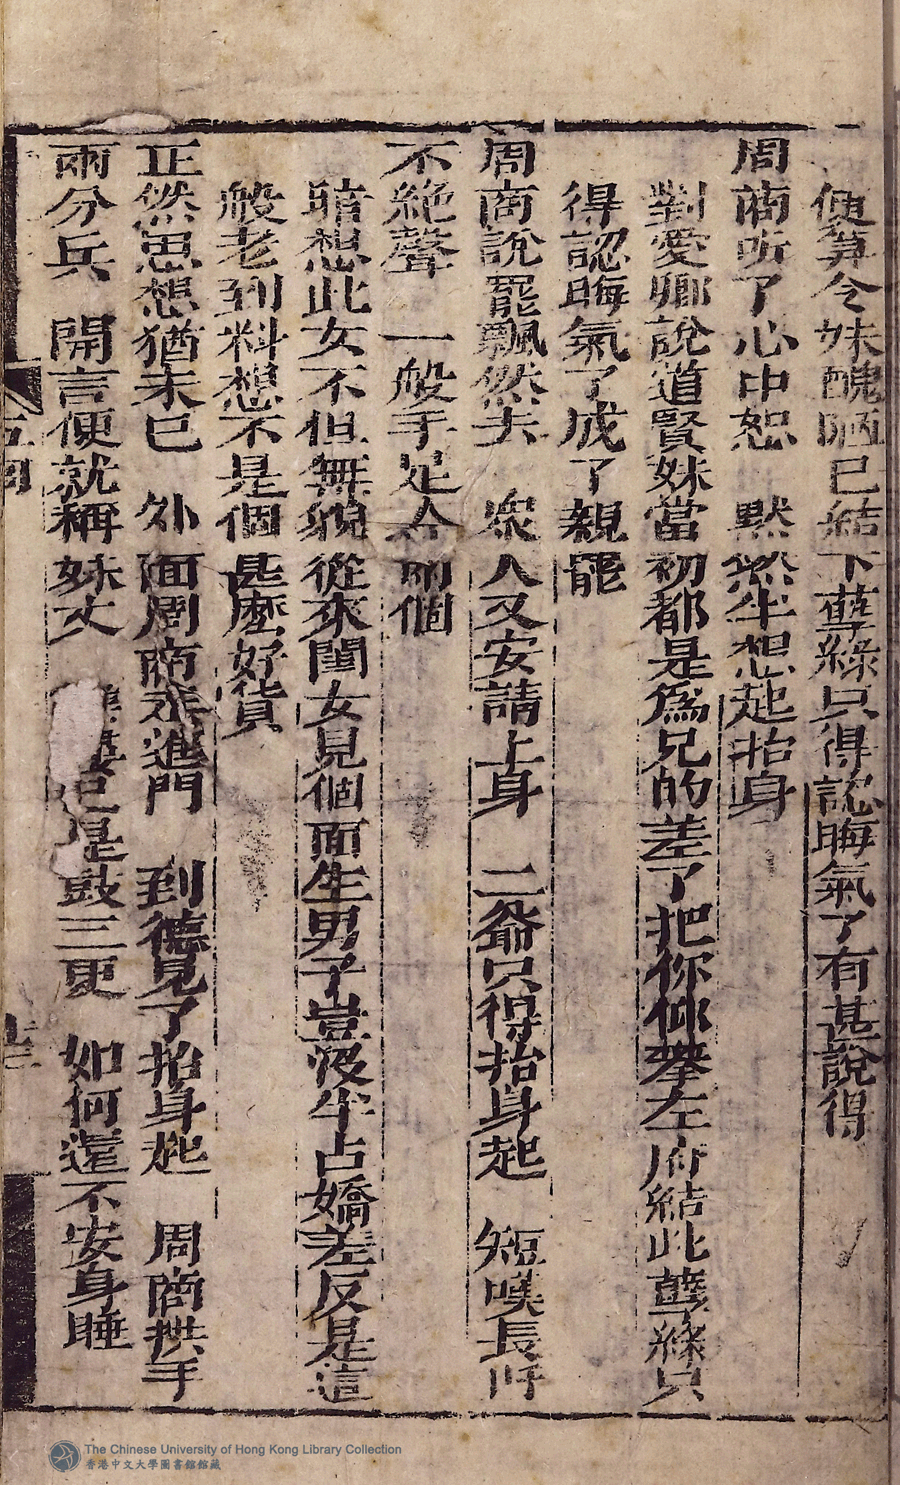 便算令妹醜陋已結下孽緣只得認晦氣了有甚說得
周商听了心中恕　黙然半想起抬身
對愛卿說道賢妹當初都是爲兄的差了把你仰攀左府結此孽緣只
得認晦氣了成了親罷
周商說罷飄然去　衆人又安請上身　二爺只得抬身起　短嘆長吁
不絶聲　一般手足人兩個
暗想此女不但無貌從來閨女見個面生男子豈没半占嬌羞反是這
般老到料想不是個甚麽好貨
正然思想猶未已　外面周商來進門　到德見了抬身起　周商拱手
兩分兵　開言便就稱妹丈　已是鼓三更　如何還不安身睡
五
The Chinese University of Hong Kong Library Collection
香港中文大學圖書館館藏